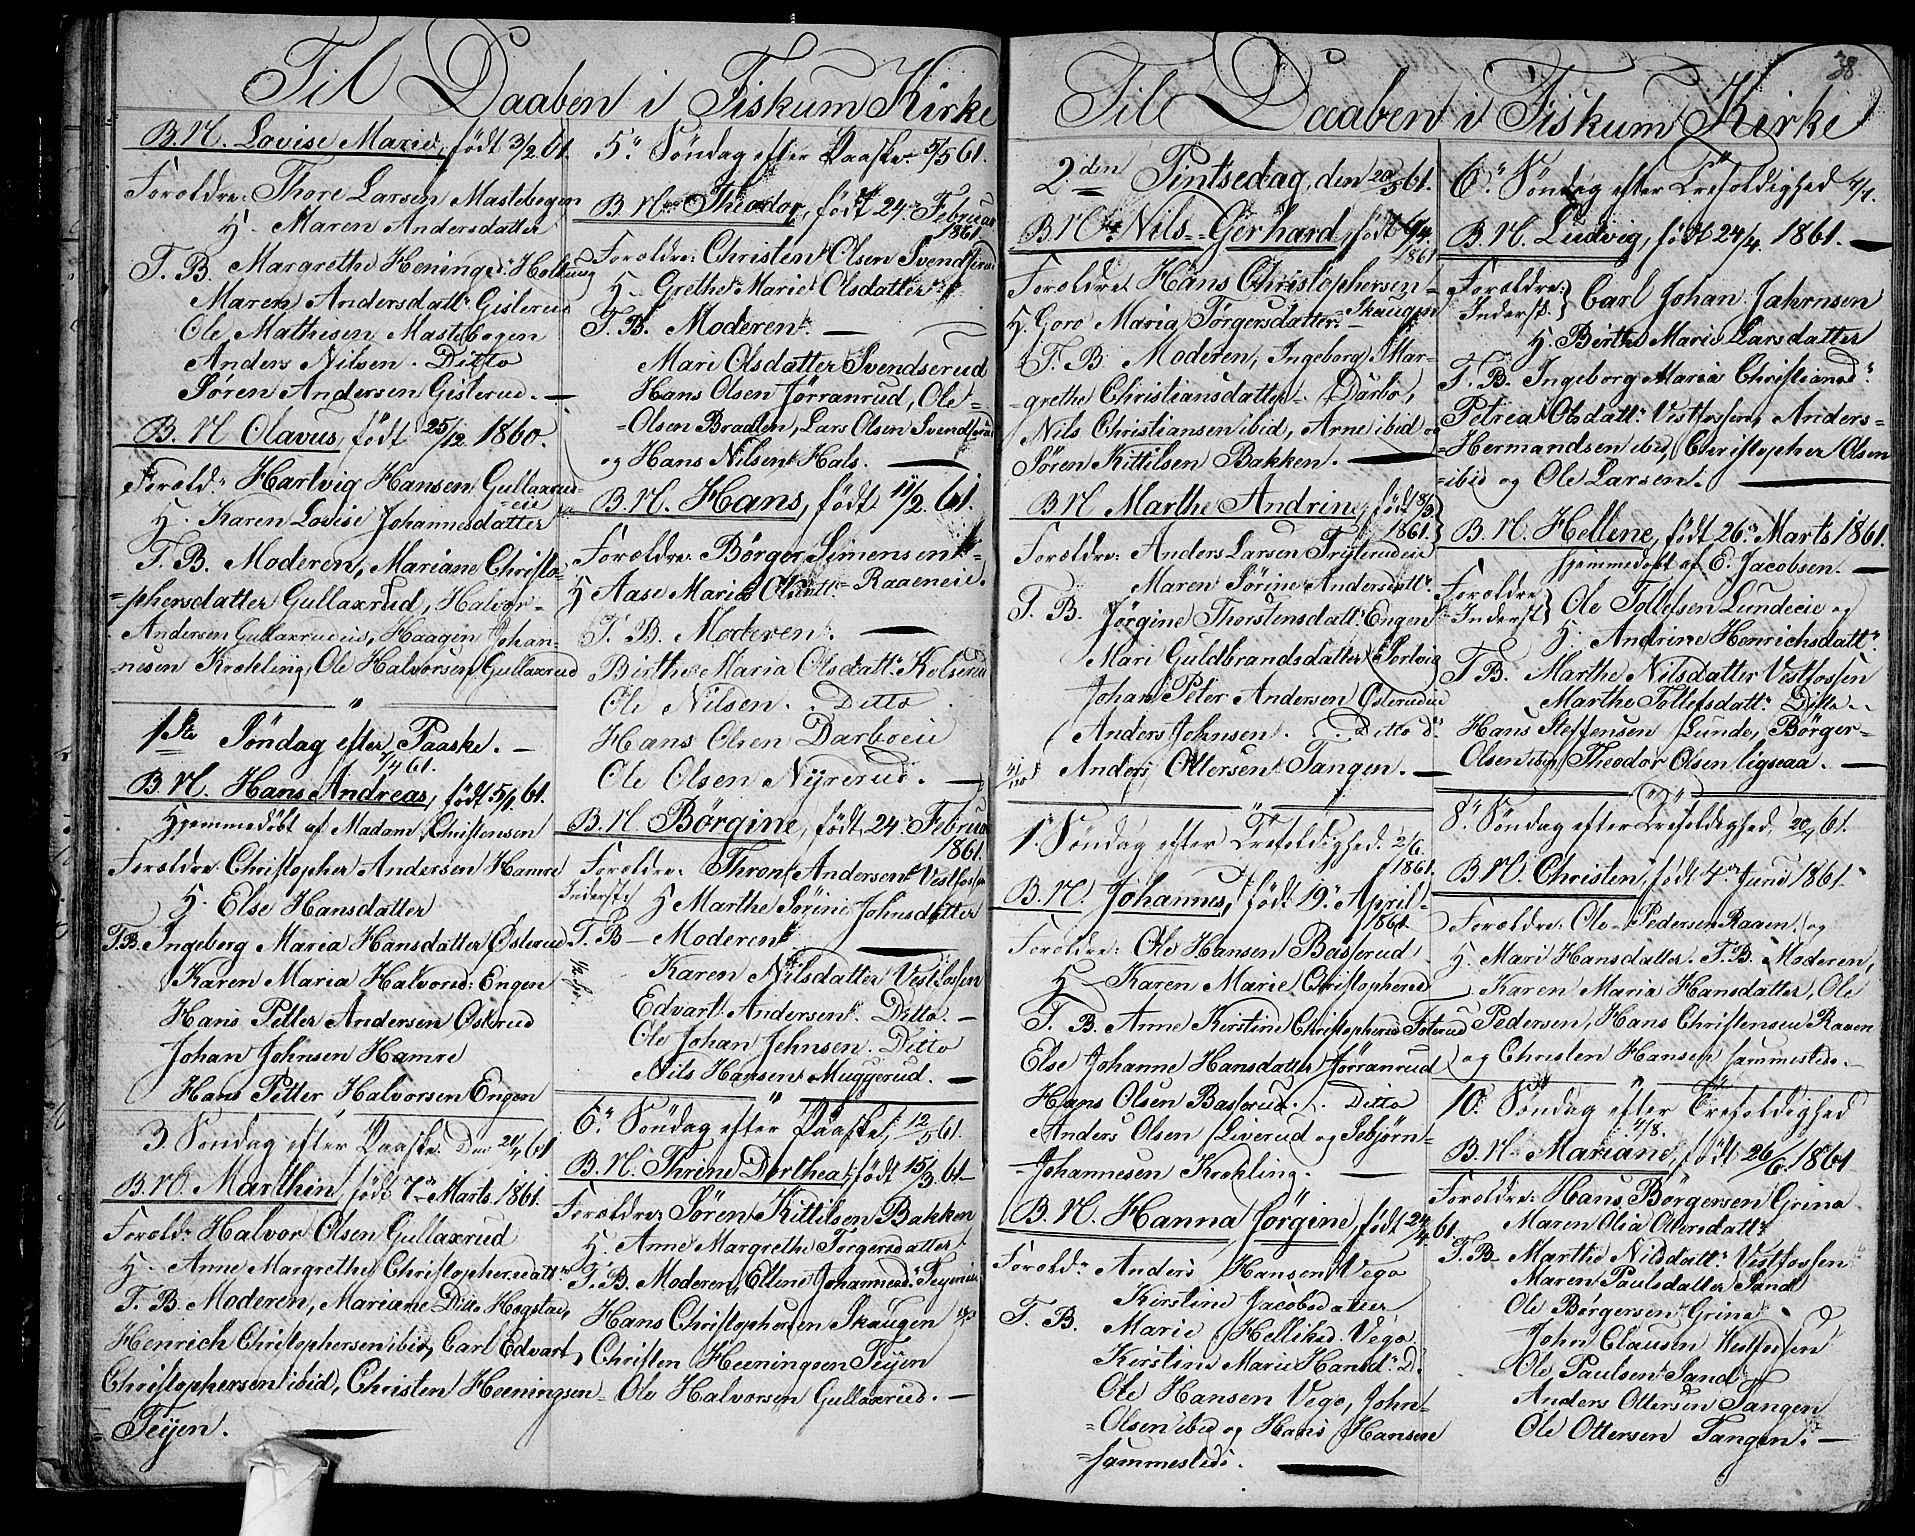 Til Daaben i Fiskum Kirke
B. N. Lovise Marie, født 3/2 61.
Forældre: Thore Larsen Mastebogen
H. Maren Andersdatter
T. B. Margrethe Heningsd: Holtung
Maren Andersdatt: Gislerud
Ole Mathisen Mastebogen
Anders Nilsen. Ditto
Søren Andersen Gislerud. —
B. N. Olavus, født 25/12 1860.
Foræld: Hartvig Hansen Gullaxrud-
eie
H. Karen Lovise Johannesdatter
T. B. Moderen, Mariane Christo-
phersdatter Gullaxrud, Halvor-
Andersen Gullaxrudeie, Haagen Johan-
nesen Krekling, Ole Halvorsen Gullaxrud
1ste Søndag efter Paaske. —
7/4 61.
B. N. Hans Andreas, født 5/1 61.
Hjemmedøbt af Madam Christensen
Forældre Christopher Andersen Hamre
H. Else Hansdatter
T. B. Ingeborg Maria Hansdatter Østerud
Karen Maria Halvorsd: Engen
Hans Petter Andersen Østerud
Johan Johnsen Hamre
Hans Petter Halvorsen Engen
3 Søndag efter Paaske. Den 21/4 61
B. N. Marthin, født 7de Marts 1861.
Foræld: Halvor Olsen Gullaxrud
H. Anne Margrethe Christophersdatt:
T. B. Moderen, Mariane Ditto Hogstad,
Henrich Christophersen ibid, Carl Edvart
Christophersen ibid, Christen Heeningsen
Teijen. —
5: Søndag efter Paaske 5/5 61.
B. N. Theodor, født 24: Februar
1861.
Forældre: Christen Olsen Svendserud
H. Grethe Marie Olsdatter
T. B. Moderen. —
Mari Olsdatter Svendserud
Hans Olsen Jørranrud, Ole-
Olsen Braaten, Lars Olsen Svendserud
og Hans Nilsen Hals. —
B. N. Hans, født 11/2 61.
Forældre: Børger Simensen
H Aase Maria Olsdatt: Raaeneie.
T. B. Moderen. —
Birthe Maria Olsdatt: Kolserud
Ole Nilsen. Ditto.
Hans Olsen Darboeie
Ole Olsen Nyrerud. —
B. N Børgine, født 24: Februar
1861.
Forældre: Thron Andersen Vestfossen
Inderst: H Marthe Sørine Johnsdatter
T. B — Moderen —
Karen Nilsdatter Vestfossen
Edvart Andersen. Ditto. —
Ole Johan Johnsen. Ditto
Nils Hansen Muggerud. —
6: Søndag efter Paaske, 12/5 61.
B. N. Thrine Dorthea, født 15/3 61—
Forældre: Søren Kittilsen Bakken
H. Anne Margrethe Torgersdatter
T. B. Moderen, Ellene Johannesd: Teijeneie
Hans Christophersen Skaugen
Christen Heeningsen Teijen
Ole Halvorsen Gullaxrud. —
38
Til Daaben i Fiskum Kirke
2den Pintsedag, den 20/5 61.
B. N. Nils Gerhard, født 6/4.
1861
Forældre Hans Christophersen-
Skaugen
H. Goro Maria Torgersdatter.
T. B. Moderen, Ingeborg Mar-
grethe Christiansdatter Darbo,
Nils Christiansen ibid, Arne ibid og
Søren Kittilsen Bakken. —
B. N Marthe Andrine, født 18/3
1861.
Forældre: Anders Larsen Trylerudeie
Maren Sørine Andersdatt:
T. B. Jørgine Thorstensdatt: Engen
Mari Guldbrandsdatter Sortvig
Johan Peter Andersen Østerudeie
Anders Johnsen. Ditto D:
Anders Ottersen Tangen. —
1: Søndag efter Trefoldighed. 2/6.
1861.
B. N. Johannes, født 19: April-
1861
Forældre: Ole Hansen Basserud
H Karen Marie Christophersd
T. B. Anne Kirstine Christophersd Foterud
Else Johanne Hansdatter Jørranrud
Hans Olsen Basserud. Ditto
Anders Olsen Liverud og Sebjørn-
Johannesen Krekling. —
B. N. Hanna Jørgine, født 24/4 61.
Foræld: Anders Hansen Vego
Kirstine Jacobsdatter
T. B. Marie Helliksd. Vego
Kirstine Marie Hansd: D.
Ole Hansen Vego, John-
Olsen ibid og Hans Hansen
sammesteds. —
6: Søndag efter Trefoldighed 7/7.
B. N. Ludvig, født 24/4. 1861. —
Forældre: Inderst: } Carl Johan Jahrnsen
H. Birthe Marie Larsdatter
T. B. Ingeborg Maria Christiansd:
Petrea Olsdatt: Vestfossen, Anders-
Hermandsen ibid, Christopher Olsen
ibid og Ole Larsen. —
B. N. Hellene, født 26: Marts 1861.
hjemmedøbt af E. Jacobsen. —
Forældre Inderst } Ole Tollefsen Lundeeie og
H. Andrine Henrichsdatt:
T. B. Marthe Nilsdatter Vestfossen
Marthe Tollefsdatt: Ditto..
Hans Steffensen Lunde, Børger-
Olsen ibid, Theodor Olsen ligesaa. —
8: Søndag efter Trefoldighed, 20/7 61.
B. N. Christen, født 4de Juni 1861.
Forældre: Ole Pedersen Raaen. og
H. Mari Hansdatter. T. B. Moderen,
Karen Maria Hansdatter, Ole
Pedersen, Hans Christensen Raaen
og Christen Hansen sammesteds. —
10: Søndag efter Trefoldighed
4/8.
B. N. Mariane, født 26/6. 1861
Forældre: Hans Børgersen Grina
Maren Olia Olversdatt:
T. B. Marthe Nilsdatt: Vestfossen
Maren Paulsdatter Sand
Ole Børgersen Grina
John Clausen Vestfossen
Ole Paulsen Sand
Anders Ottersen Tangen
Ole Ottersen Tangen. —